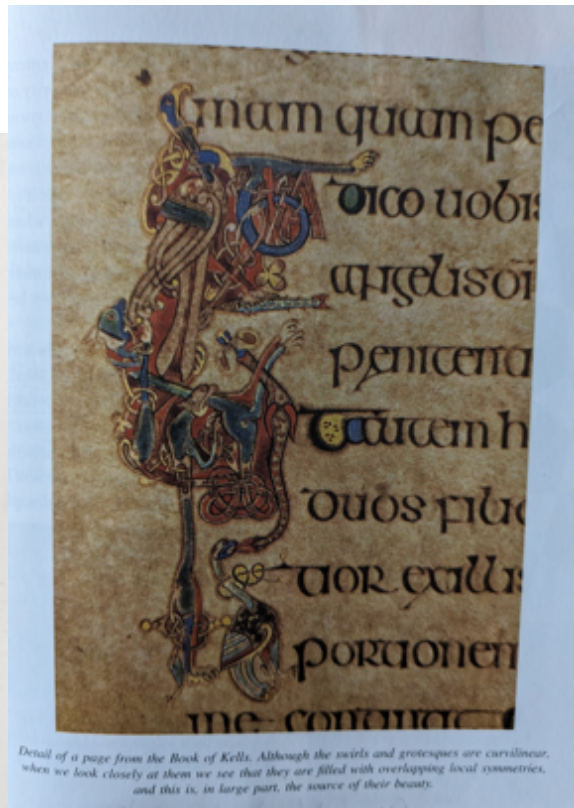 mam quam pe
dico uobis
angelis di
penitentia
autem h
duos filio
tior ex illis
portionem
me contingit
Detail of a page from the Book of Kells. Although the swirls and grotesques are curvilinear,
when we look closely at them we see that they are filled with overlapping local symmetries,
and this is, in large part, the source of their beauty.